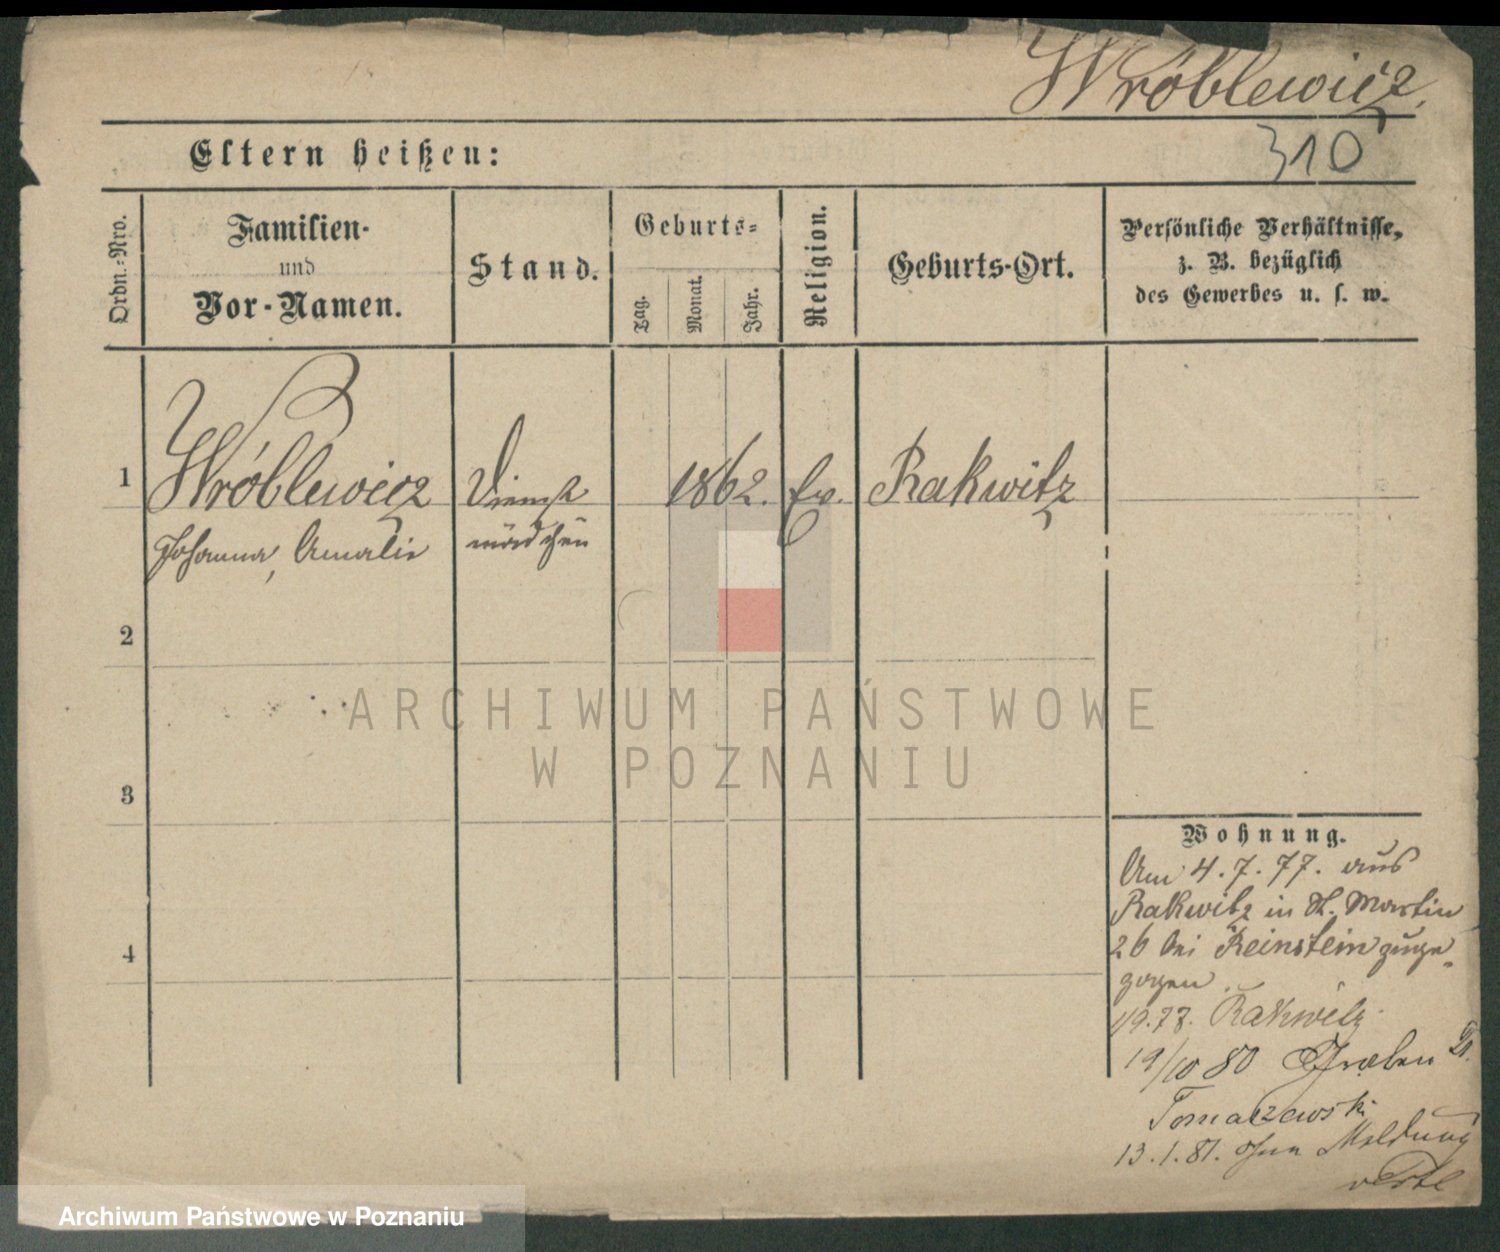 Wróblewicz.
310
Eltern heißen:
Ordn.-Nro.
Familien-
und
Vor-Namen.
Stand.
Geburts-
Tag.
Monat.
Jahr.
Religion.
Geburts-Ort.
Persönliche Verhältnisse,
z. B. bezüglich
des Gewerbes u. s. w.
1
Wróblewicz
Johanna, Amalie
Dienst
mädchen
1862.
Ev.
Rakwitz
2
3
4
Wohnung.
Am 4.7.77. aus
Rakwitz in St. Martin
26 bei Reinstein zuge-
zogen.
1/9.78. Rakwitz
19/10 80 Graben
Tomaczewski
13.1.81. ohne Meldung
ARCHIWUM PAŃSTWOWE
W POZNANIU
Archiwum Państwowe w Poznaniu